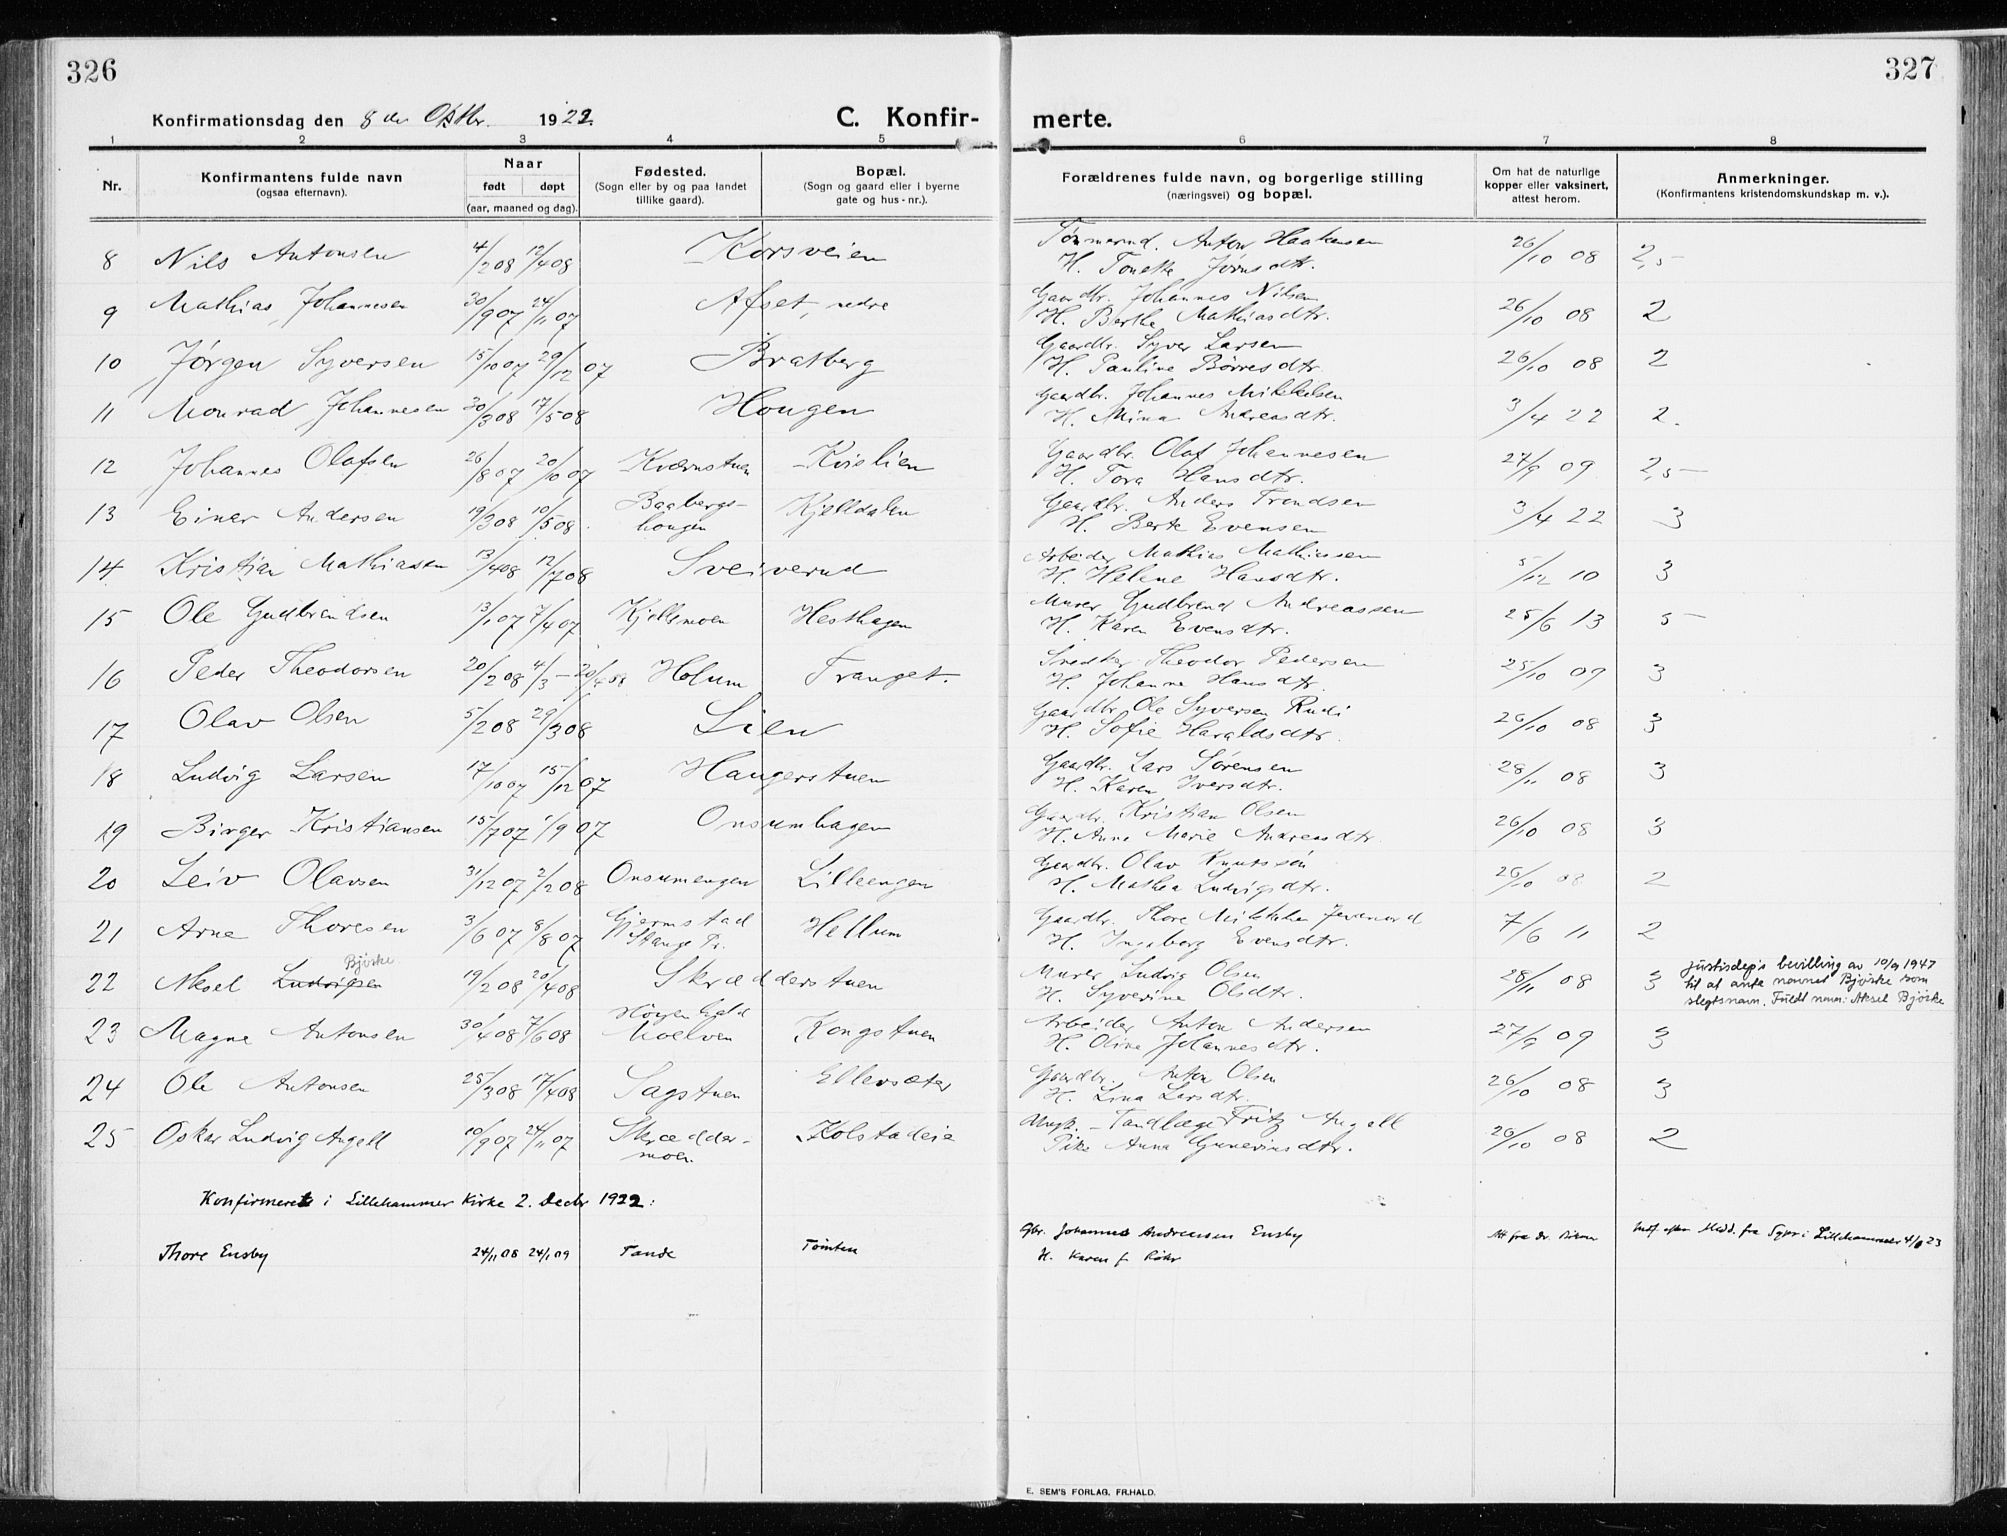 326
327
Konfirmationsdag den 8 de Oktbr. 1922.
C. Konfirmerte.
1 2 3 4 5 6 7 8
Nr.
Konfirmantens fulde navn
(ogsaa efternavn).
Naar
født døpt
(aar, maaned og dag).
Fødested.
(Sogn eller by og paa landet
tillike gaard).
Bopæl.
(Sogn og gaard eller i byerne
gate og hus-nr.).
Forældrenes fulde navn, og borgerlige stilling
(næringsvei) og bopæl.
Om hat de naturlige
kopper eller vaksinert,
attest herom.
Anmerkninger.
(Konfirmantens kristendomskundskap m. v.).
8 Nils Antonsen 4/2 08 12/4 08 Korsveien Tømmermd. Anton Haakensen 26/10 08 2,5
H. Tonette Jørnsdtr.
9 Mathias Johannesen 30/9 07 24/11 07 Afset, nedre Gaardbr. Johannes Nilsen 26/10 08 2
H. Berthe Mathiasdtr.
10 Jørgen Syversen 15/10 07 29/12 07 Bratberg Gaardbr. Syver Larsen 26/10 08 2
H. Pauline Børresdtr.
11 Monrad Johannesen 30/3 08 17/5 08 Hougen Gaardbr. Johannes Mikkelsen 3/4 22 2.
H. Mina Andreasdtr.
12 Johannes Olafsen 26/8 07 20/10 07 Kværnstuen Kvislien Gaardbr. Olaf Johannesen 27/9 09 2,5
H. Tora Hansdtr.
13 Einar Andersen 19/3 08 10/5 08. Baabergs- Kjelldalen Gaardbr. Anders Trondsen 3/4 22 3
hougen H. Berte Evensen
14 Kristian Mathiasen 13/4 08 12/7 08 Sveiverud Arbeider Mathias Mathiassen 5/12 10 3
H. Helene Hansdtr.
15 Ole Gudbrandsen 13/1 07 7/4 07 Kjellemoen Hesthagen Murer Gudbrand Andreassen 25/6 13 5
H. Karen Evensdtr.
16 Peder Theodorsen 20/2 08 4/3 - 20/4 08 Holum Tranget. Snedker Theodor Pedersen 25/10 09 3
H. Johanne Hansdtr.
17 Olav Olsen 5/2 08 29/3 08 Lien Gaardbr. Ole Syversen Rudi 26/10 08 3
H. Sofie Haraldsdtr.
18 Ludvig Larsen 17/10 07 15/12 07 Haugerstuen Gaardbr. Lars Sørensen 28/11 08 3
H. Karen Iversdtr.
19 Birger Kristiansen 15/7 07 1/9 07 Onsumhagen Gaardbr. Kristian Olsen 26/10 08 3
H. Anna Marie Andreasdtr.
20 Leiv Olavsen 31/12 07 2/2 08 Onsumengen Lilleengen Gaardbr. Olav Knutssøn 26/10 08 2
H. Mathea Ludvigsdtr.
21 Arne Thoresen 3/6 07 8/8 07 Gjermstad Hellum Gaardbr. Thore Mikkelsen 7/6 11 2
Stange Pr. H. Ingeborg Evensdtr.
Bjørke
22 Aksel Ludvigsen 19/2 08 20/4 08 Skrædderstuen Murer Ludvig Olsen 28/11 08 3 Justisdep's bevilling av 10/9 1947
H. Syverine Olsdtr. til at anta navnet Bjørke som
slegtsnavn. Fuldt navn: Aksel Bjørke
23 Magne Antonsen 30/4 08 7/6 08 Moelven Kongstuen Arbeider Anton Andersen 27/9 09 3
H. Oline Johannesdtr.
24 Ole Antonsen 25/3 08 17/4 08 Sagstuen Ellevsæter Gaardbr. Anton Olsen 26/10 08 3
H. Lina Larsdtr.
25 Oskar Ludvig Angell 10/9 07 24/11 07 Skrædder- Kolstadeie Ungk. - Tandlæge Fritz Angell 26/10 08 2
moen. Pike Anna Guneriusdtr.
Konfirmeret i Lillehammer Kirke 2. Decbr 1922:
Thore Ensby 24/11 08 24/1 09 Tande Tomten Gbr. Johannes Andreasen Ensby Att fra dr. Indf. efter Medd. fra Sgpr i Lillehammer 23
H. Karen f. Röhr
E. SEM'S FORLAG, FR.HALD.